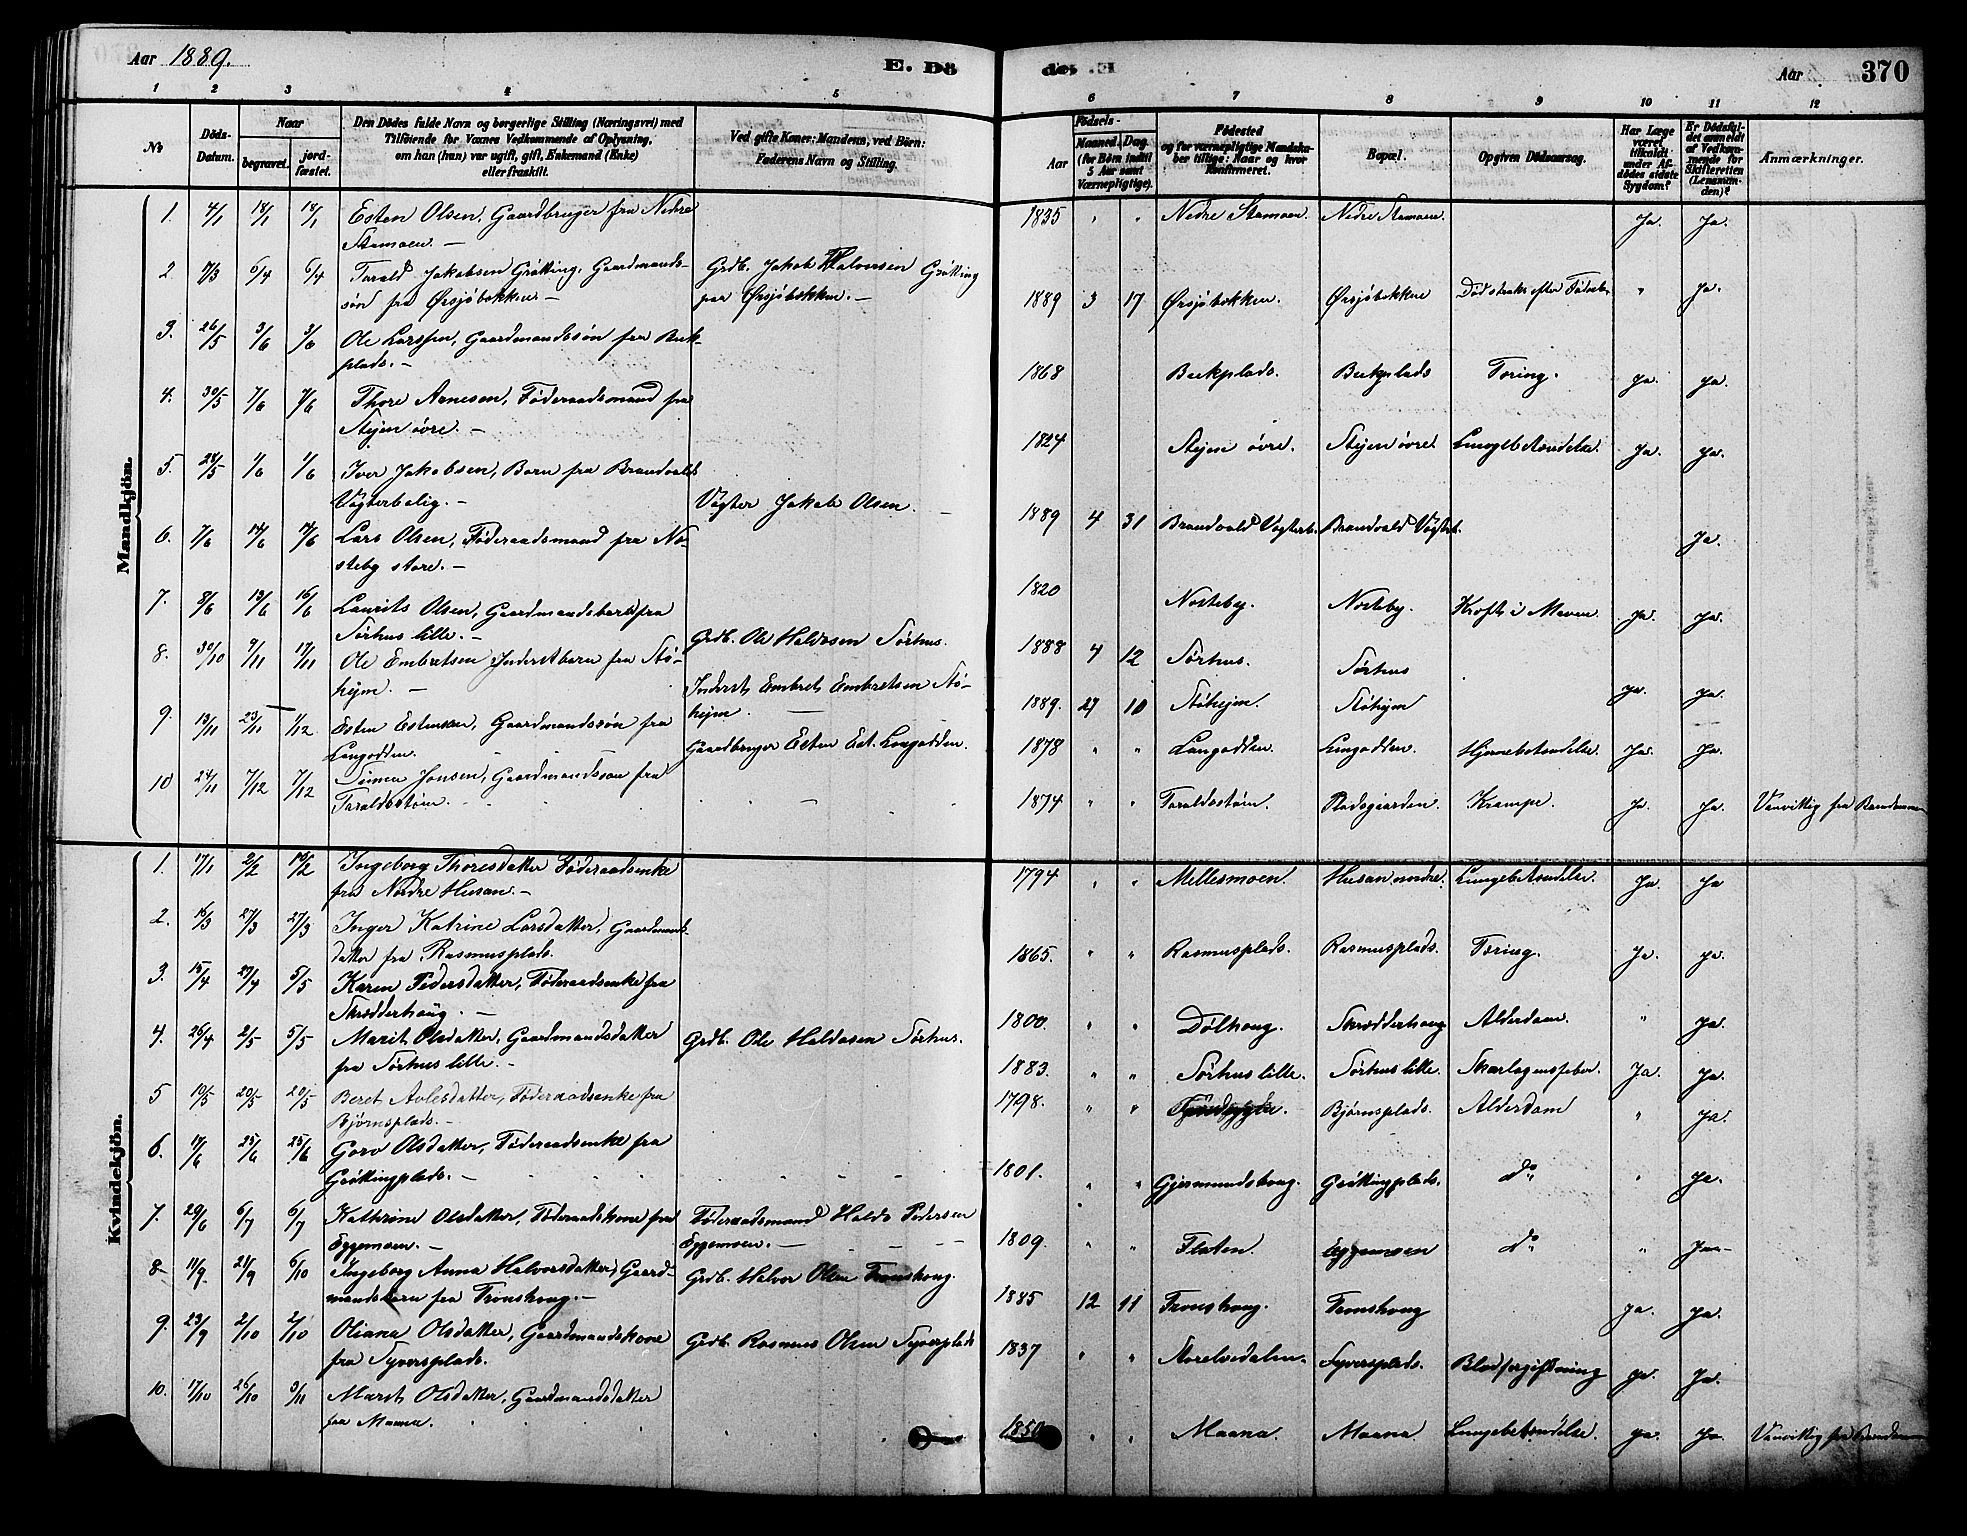 Aar 1889.
E. Dö
de. E
Aar
370
1 2 3 4 5 6 7 8 9 10 11 12
No.
Döds-Datum.
Naar
begravet.
jordfæstet.
Den Dödes fulde Navn og borgerlige Stilling (Næringsvei) med
Tilföiende for Voxnes Vedkommende af Oplysning,
om han (hun) var ugift, gift, Enkemand (Enke)
eller fraskilt.
Ved gifte Koner: Mandens; ved Börn:
Faderens Navn og Stilling.
Födsels-
Aar
Maaned. Dag.
(for Börn indtil
5 Aar samt
Værnepligtige).
Födested
og for værnepligtige Mandska-
ber tillige: Naar og hvor
Konfirmeret.
Bopæl.
Opgiven Dödsaarsag.
Har Læge
været
tilkaldt
under Af-
dödes sidste
Sygdom?
Er Dödsfal-
det anmeldt
af Vedkom-
mende for
Skifteretten
(Lensman-
den)?
Anmærkninger.
Mandkjön.
1. 4/1 18/1 18/1 Esten Olsen, Gaardbruger fra Nedre 1835 " " Nedre Stamoen. Nedre Stamoen. Ja. Ja.
Stamoen. —
2 7/3 6/4 6/4 Tarald Jakobsen Grøtting, Gaardmands- Grdb. Jakob Halvorsen Grøtting
søn fra Ørsjøbækken. — paa Ørsjøbækken. — 1889 3 17 Ørsjøbækken. Ørsjøbækken Død strax efter Fødselen " Ja.
3. 26/5 3/6 3/6 Ole Larssen, Gaardmandssøn fra Bek-
plads. — 1868 Bekplads. Bekplads Tæring. Ja. Ja.
4. 30/5 7/6 7/6 Thore Arnesen, Føderaadsmand fra
Stejen øvre. — 1824 Stejen øvre. Stejen øvre. Lungebetændelse. Ja. Ja.
5. 28/5 1/6 1/6 Iver Jakobsen, Barn fra Brandvold
Vogterbolig. — Vogter Jakob Olsen. — 1889 4 31 Brandvold Vogterb. Brandvold Vogterb. Ja.
6. 7/6 14/6 14/6 Lars Olsen, Føderaadsmand fra No-
steby store. — 1820 Nosteby. Nosteby. Kræft i Maven Ja. Ja.
7. 8/6 13/6 16/6 Laurits Olsen, Gaardmandsbarn fra
Sørhus lille. — Grdb. Ole Haldosen Sørhus. 1888 4 12 Sørhus. Sørhus Ja. Ja.
8. 30/10 9/11 17/11 Ole Embretsen Inderstbarn fra Stø-
hejm. — Inderst Embret Embretsen Stø-
hejm — 1889. 27 10 Støhejm. Støhejm
9. 13/11 23/11 1/12 Esten Estensen, Gaardmandssøn fra
Langodden. Gaardbruger Esten Est. Langodden. 1878 " " Langodden. Langodden. Hjernebetændelse. Ja. Ja.
10 24/11 7/12 7/12 Simen Jonsen, Gaardmandssøn fra
Taraldsstøm. 1874 " " Taraldsstøm. Pladsgaarden. Krampe. Ja. Ja. Vanvittig fra Barndommen
Kvindekjön.
1. 17/1 2/2 10/2 Ingeborg Thoresdatter Føderaadsenke
fra Nordre Husan. — 1794 " " Millesmoen. Husan nordre. Lungebetændelse. Ja. Ja
2. 16/3 27/3 27/3 Inger Katrine Larsdatter, Gaardmands-
datter fra Rasmusplads. 1865. " " Rasmusplads. Rasmusplads. Tæring. Ja. Ja.
3. 15/4 27/4 5/5 Karen Pedersdatter, Føderaadsenke fra
Skrædderhaug. — 1800. " " Dølhaug. Skrædderhaug Alderdom. " Ja.
4. 26/4 2/5 5/5 Marit Olsdatter, Gaardmandsdatter Grdb. Ole Haldosen Sørhus.
fra Sørhus lille. — 1883. " " Sørhus lille. Sørhus lille. Skarlagensfeber. Ja. Ja.
5 10/5 20/5 20/5 Beret Avlesdatter, Føderaadsenke fra
Bjørnsplads. — 1798. " " Bjørnsplads. Alderdom " Ja.
6. 17/6 25/6 25/6 Goro Olsdatter, Føderaadsenke fra
Grøttingplads. — 1801. " " Gjermundshaug. Grøttingplads. do " Ja.
7. 29/6 6/7 6/7 Kathrine Olsdatter, Føderaadskone fra Føderaadsmand Haldo Pedersen
Eggemoen. — Eggemoen. — 1809. " " Floten. Eggemoen do " Ja —
8 11/9. 21/9 6/10 Ingeborg Anna Halvorsdatter, Gaard- Grdb. Halvor Olsen Tronshaug.
mandsbarn fra Tronshaug. — 1885 12 11 Tronshaug. Tronshaug Ja. Ja.
9. 23/9 2/10 2/10 Oliana Olsdatter, Gaardmandskone Grdb. Rasmus Olsen Syversplads
fra Syversplads. 1837 " " Storelvedalen. Syversplads. Blodforgiftning Ja. Ja.
10. 17/10 26/10 3/11 Marit Olsdatter, Gaardmandsdatter
fra Maana. 1850 " " Maana. Maana. Lungebetændelse. Ja. Ja. Vanvittig fra Barndommen